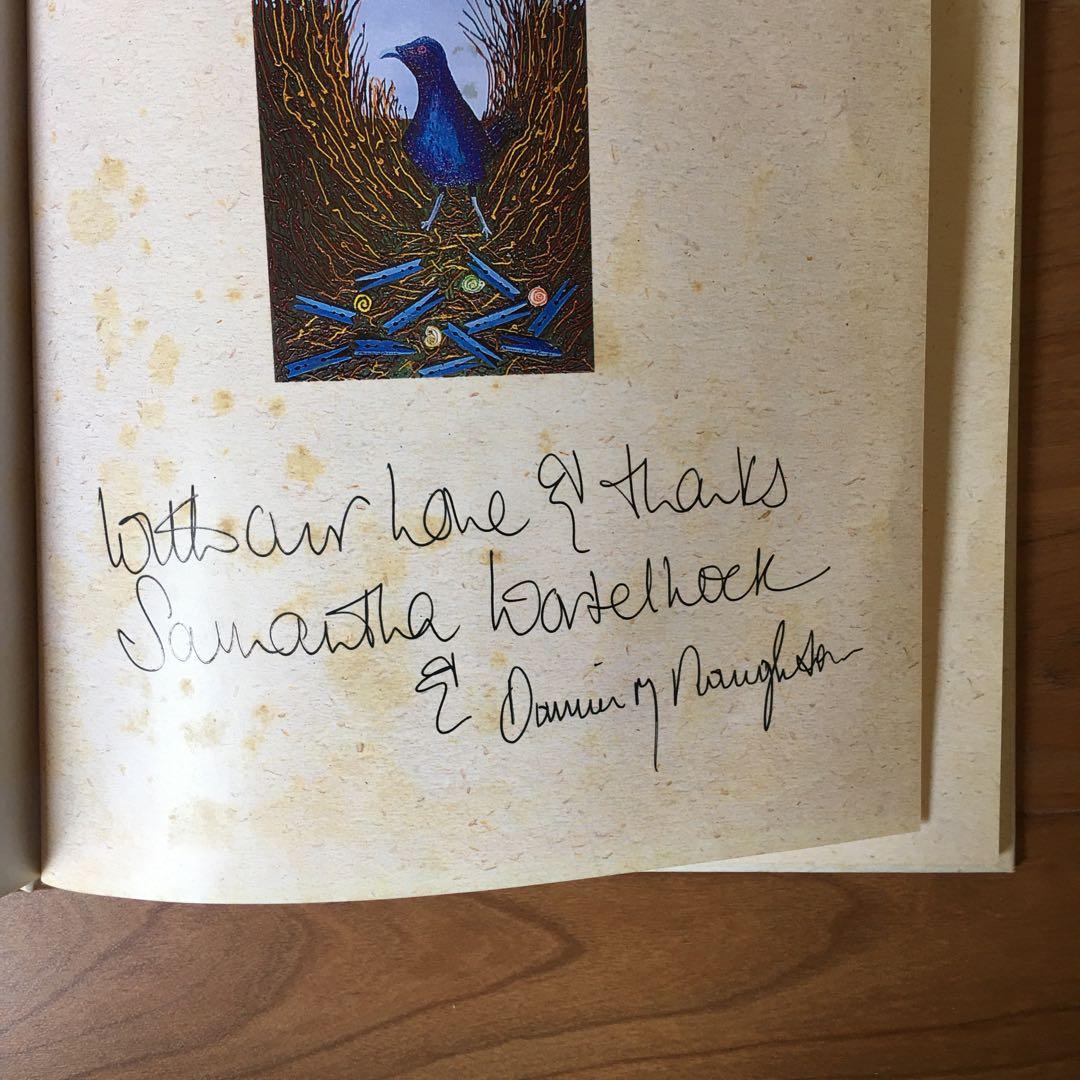 With our Love & thanks
Samantha Wortelhock
& Damien Naughton